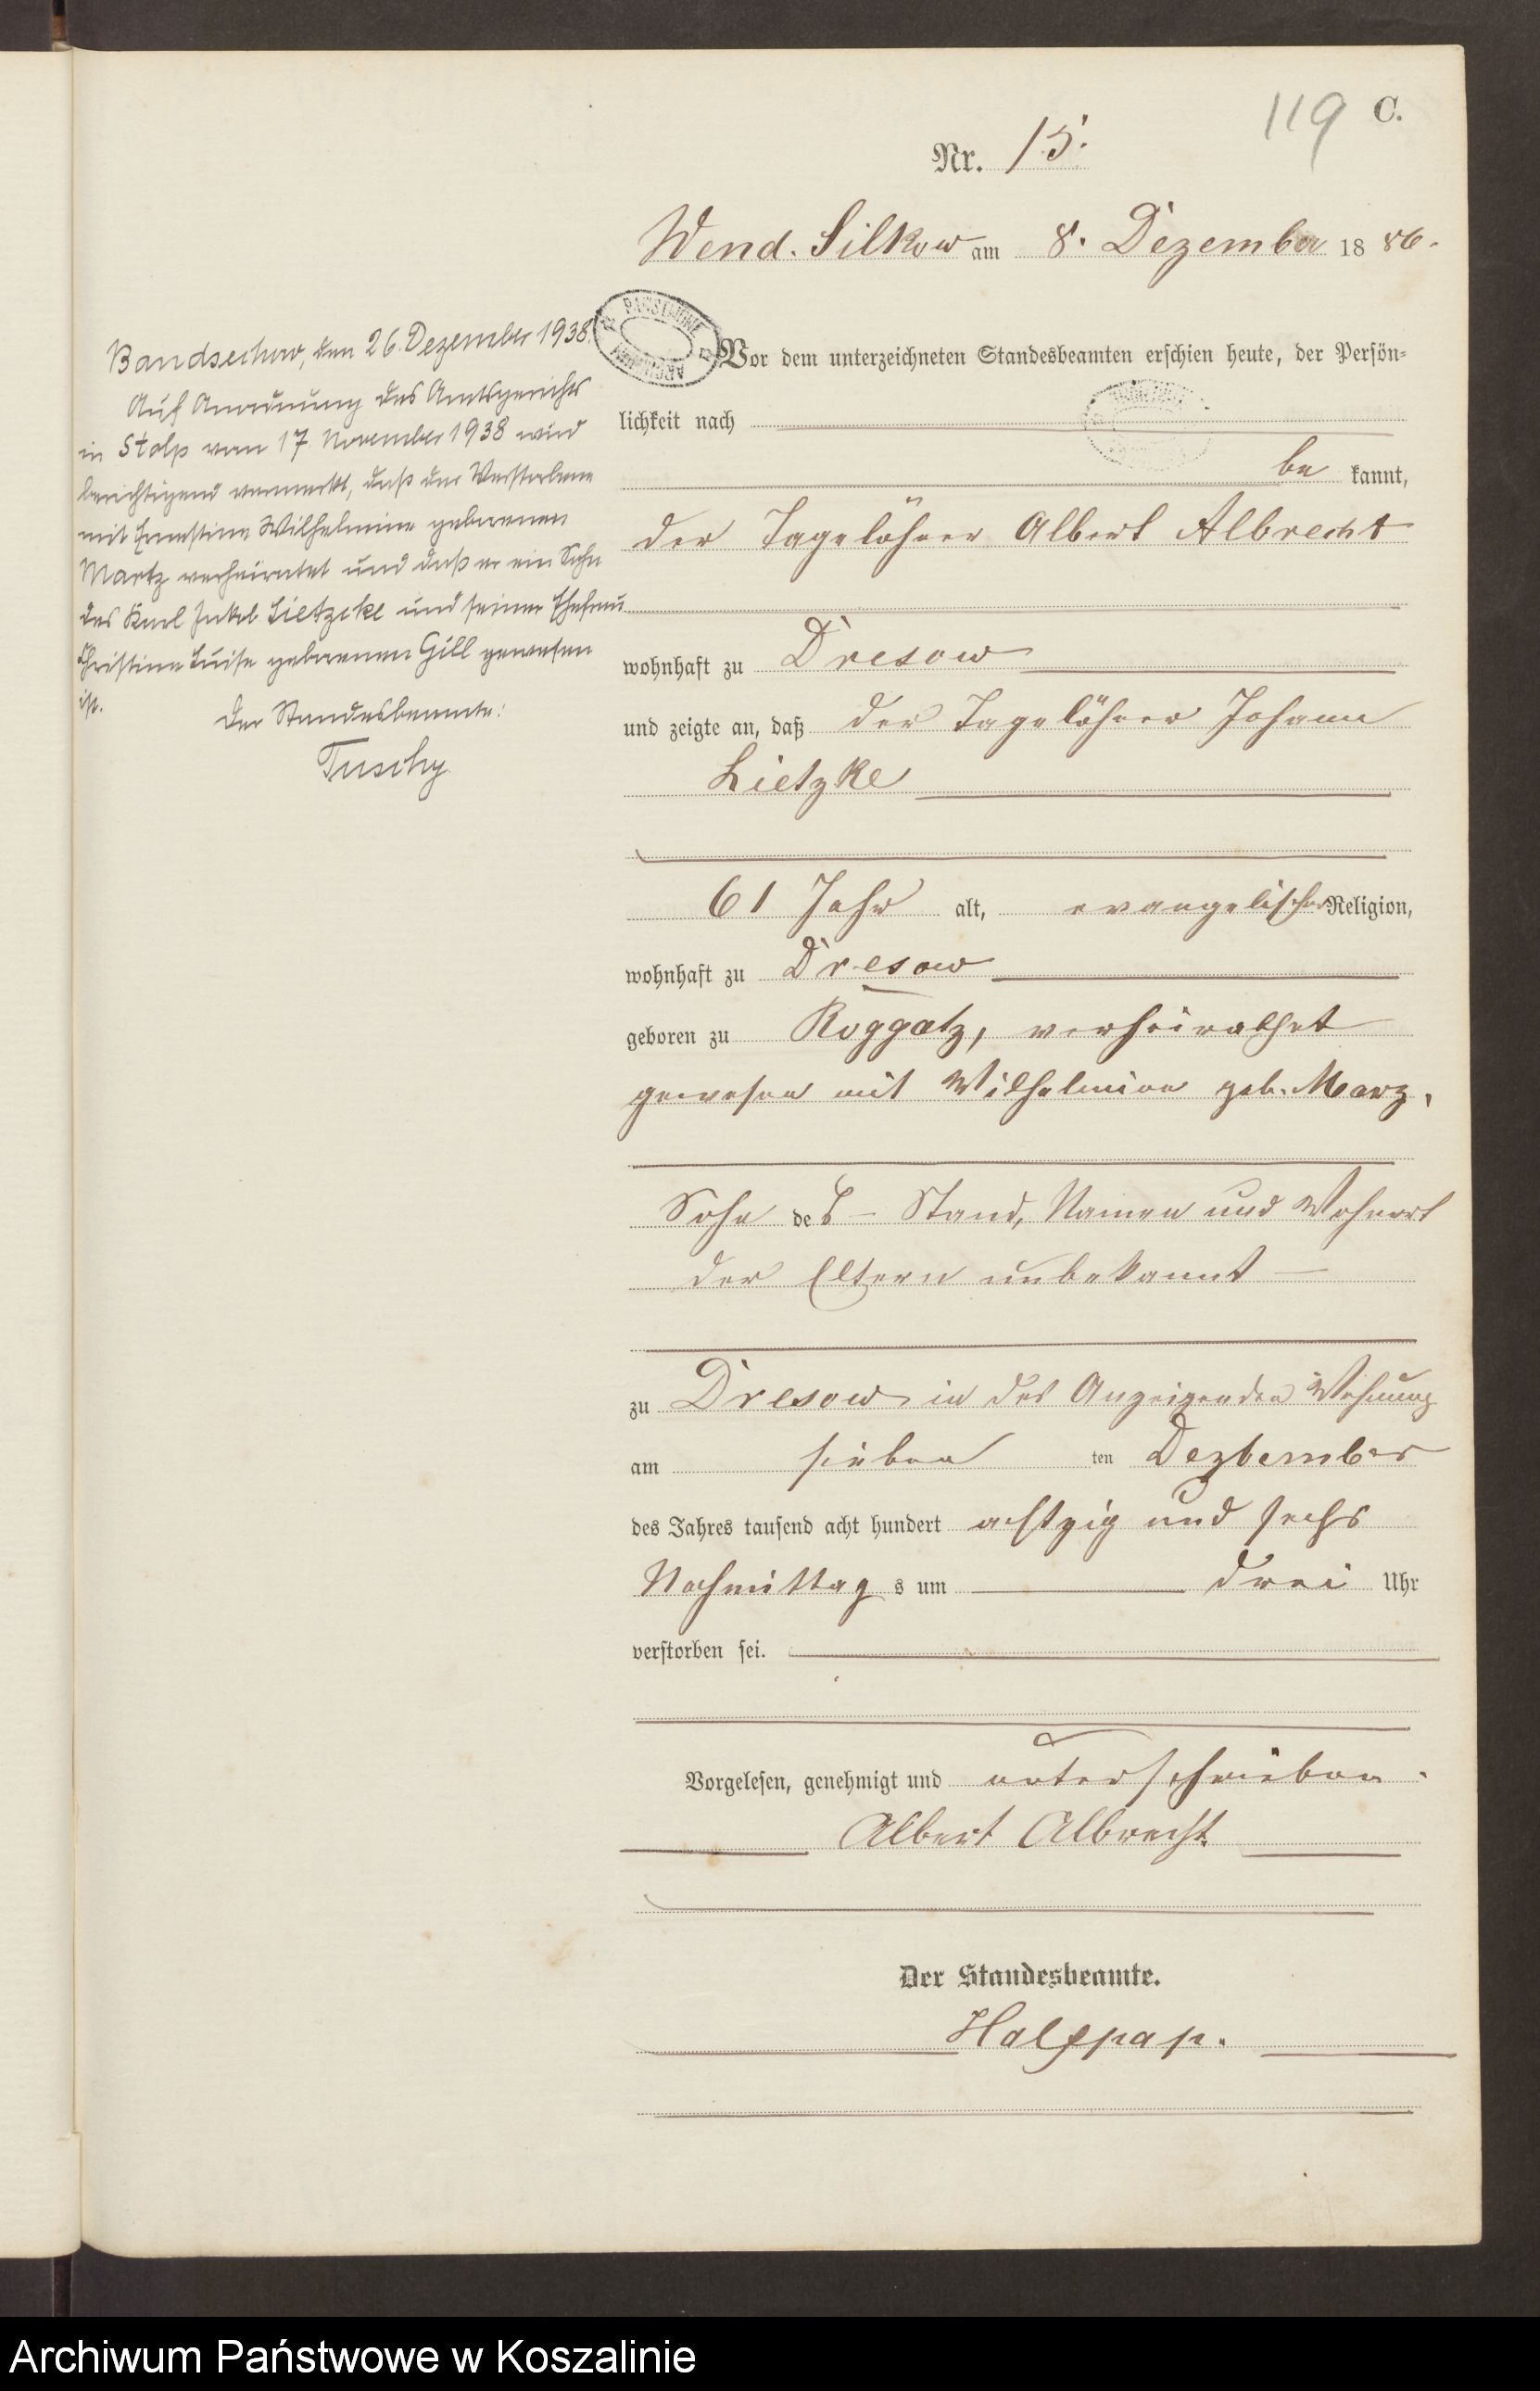 119 C.
Nr. 15.
Wend. Silkow am 8. Dezember 1886.
Vor dem unterzeichneten Standesbeamten erschien heute, der Persön=
lichkeit nach
be kannt,
der Tagelöhner Albert Albrecht
wohnhaft zu Dresow
und zeigte an, daß der Tagelöhner Johann
Lietzke
61 Jahr alt, evangelischer Religion,
wohnhaft zu Dresow
geboren zu Roggatz, verheirathet
gewesen mit Wilhelmine geb. Marz,
Sohn des – Stand, Namen und Wohnort
der Eltern unbekannt –
zu Dresow in des Anzeigenden Wohnung
am sieben ten Dezbember
des Jahres tausend acht hundert achtzig und sechs
Nachmittag s um drei Uhr
verstorben sei.
Vorgelesen, genehmigt und unterschrieben.
Albert Albrecht.
Der Standesbeamte.
Halfpap.
Bandsechow, den 26. Dezember 1938.
Auf Anordnung des Amtsgerichts
in Stolp vom 17. November 1938 wird
berichtigend vermerkt, daß der Verstorbene
mit Ernestine Wilhelmine geborenen
Martz verheiratet und daß er ein Sohn
des Karl Lietzcke und seiner Ehefrau
Christine Luise geborenen Gill gewesen
ist.
Der Standesbeamte:
Tuschy
PAŃSTWOWE
ARCHIWUM
Archiwum Państwowe w Koszalinie